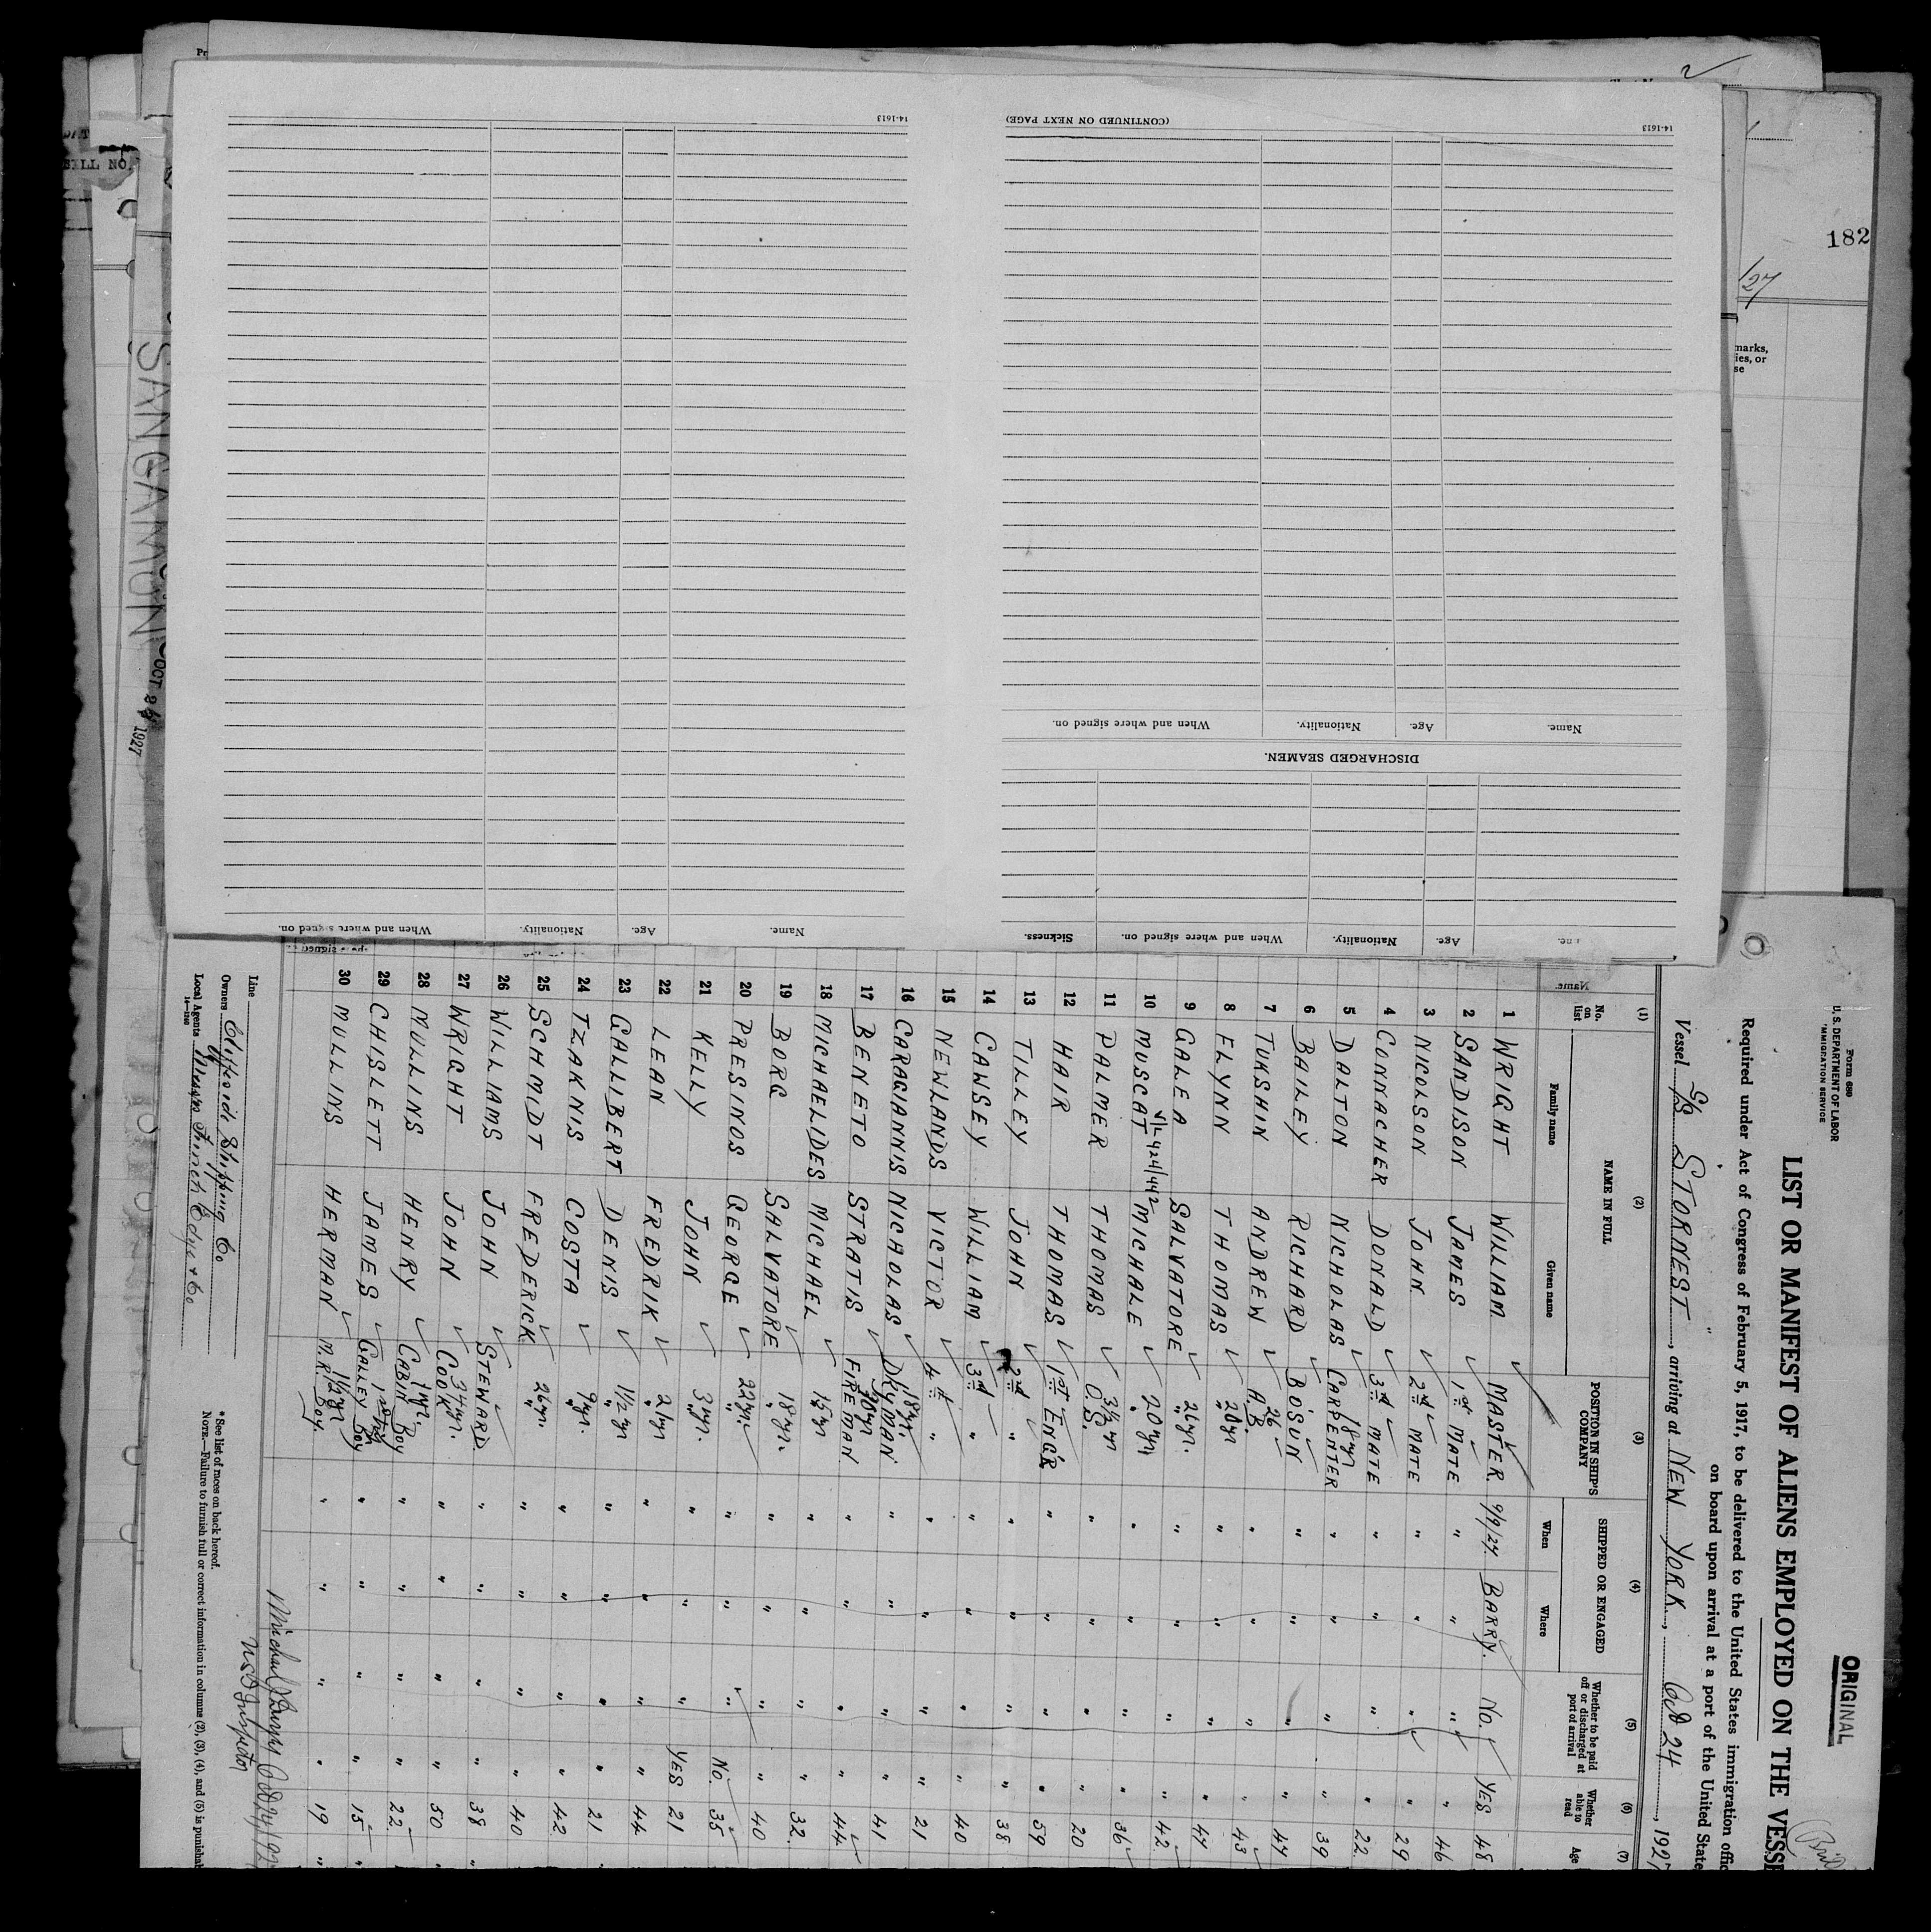 182
/27
marks,
ies, or
se
SANGAMON
OCT 24 1927
14-1613
(CONTINUED ON NEXT PAGE)
14-1613
Name. Age. Nationality. When and where signed on.
DISCHARGED SEAMEN.
Age. Nationality. When and where signed on. Sickness.
Name. Age. Nationality. When and where signed on.
Name.
Form 680
U. S. DEPARTMENT OF LABOR
IMMIGRATION SERVICE
ORIGINAL
LIST OR MANIFEST OF ALIENS EMPLOYED ON THE VESSE
Required under Act of Congress of February 5, 1917, to be delivered to the United States immigration offic
on board upon arrival at a port of the United State
Vessel S/S STORNEST, arriving at NEW YORK, Oct 24, 1927
(1) (2) (3) (4) (5) (6) (7)
No. on list NAME IN FULL POSITION IN SHIP'S COMPANY SHIPPED OR ENGAGED Whether to be paid off or discharged at port of arrival Whether able to read Age
Family name Given name When Where
1 WRIGHT WILLIAM MASTER 9/9/27 BARRY. No. YES 48
2 SANDISON JAMES 1st MATE " " " " 46
3 NICOLSON JOHN 2nd MATE " " " " 29
4 CONNACHER DONALD 3rd MATE " " " " 22
5 DALTON NICHOLAS 18 yr CARPENTER " " " " 39
6 BAILEY RICHARD BOSUN " " " " 47
7 TUKSHIN ANDREW 26 A.B. " " " " 43
8 FLYNN THOMAS " 20 yr " " " " 47
9 GALEA SALVATORE " 26 yr. " " " " 42
10 MUSCAT V/L 424/442 MICHALE " 20 yr " " " " 36
11 PALMER THOMAS 3½ yr O.S. " " " " 20
12 HAIR THOMAS 1st ENG'R " " " " 59
13 TILLEY JOHN 2nd " " " " " 38
14 CAWSEY WILLIAM 3rd " " " " " 40
15 NEWLANDS VICTOR 4th " " " " " 21
16 CARAGIANNIS NICHOLAS 18 yr. DKYMAN " " " " 41
17 BENETO STRATIS FIREMAN " " " " 44
18 MICHAELIDES MICHAEL " 15 yr " " " " 32
19 BORG SALVATORE " 18 yr. " " " " 40
20 PRESINOS GEORGE " 22 yr. " " " No. 35
21 KELLY JOHN " 3 yr. " " " YES 21
22 LEAN FREDRIK " 21 yr " " " " 44
23 GALLIBERT DENIS " 1½ yr " " " " 21
24 TZAKNIS COSTA " 9 yr. " " " " 42
25 SCHMIDT FREDERICK " 26 yr. " " " " 40
26 WILLIAMS JOHN STEWARD. " " " " 38
27 WRIGHT JOHN 34 yr. COOK " " " " 50
28 MULLINS HENRY 1 yr. CABIN BOY " " " " 22
29 CHISLETT JAMES GALLEY BOY " " " " 15
30 MULLINS HERMAN 1½ yr M.R. BOY. " " " " 19
Line
Owners Clifside Shipping Co
Local Agents Messrs Funch Edye & Co
14-1240
* See list of races on back hereof.
NOTE.—Failure to furnish full or correct information in columns (2), (3), (4), and (5) is punishab
Oct 24/192
Inspector